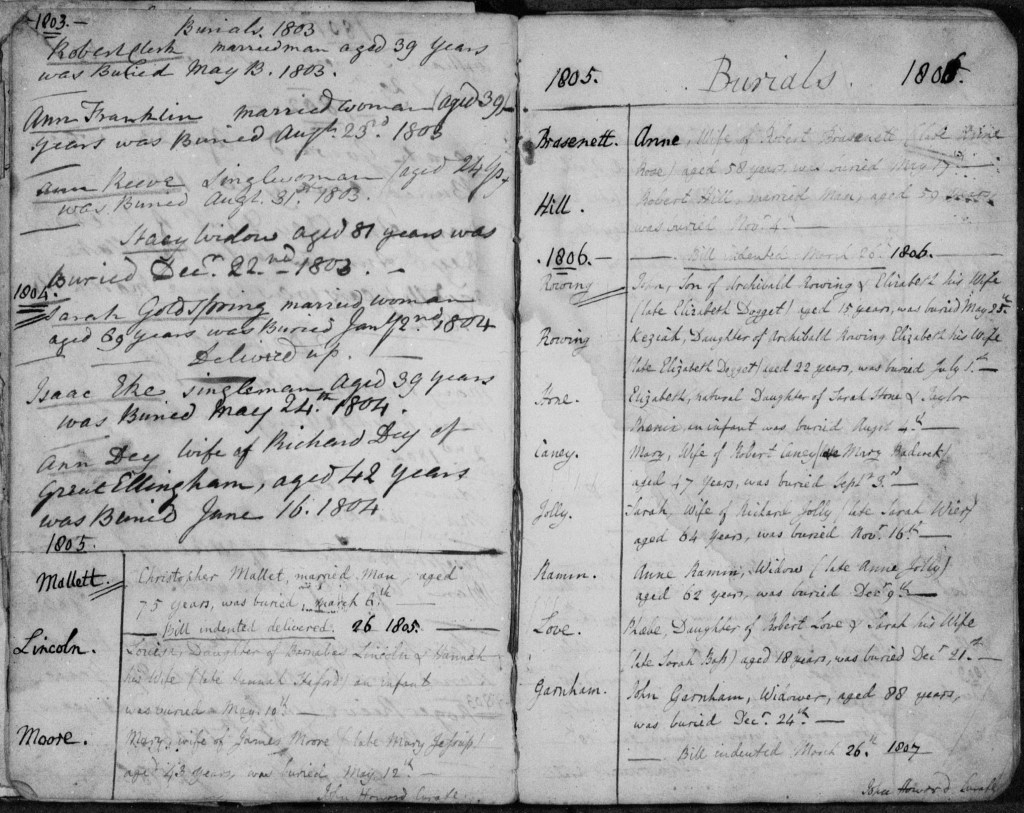 1803.
Burials 1803
Robert Clerk marriedman aged 39 years
was Buried May 13. 1803.
Ann Franklin married woman (aged 39)
years was Buried Augt. 23d 1803
Ann Reeve Singlewoman (aged 24 ys
was Buried Augt. 31st 1803.
Stacy Widow aged 81 years was
Buried Decr. 22nd 1803.
1804.
Sarah Goldspring married woman
aged 69 years was Buried Jany 2nd 1804
Delivered up.
Isaac Eke singleman, Aged 39 years
was Buried May 24th 1804.
Ann Dey wife of Richard Dey of
Great Ellingham, aged 42 years
was Buried June 16. 1804
1805.
Mallett. Christopher Mallet, married Man, aged
75 years, was buried March 6th
Bill indented delivered. 26 1805.
Lincoln. Daughter of Barnabas Lincoln & Hannah
his Wife (late Hannah) an infant
was buried May 10th
Moore. Mary, wife of James Moore (late Mary Jessup)
aged 43 years, was buried May 12th
John Howard Curate
1805. Burials 1806.
Brasenett. Anne, Wife of Robert Brasenett (late Anne
Rose) aged 58 years, was buried May 17
Hill. Robert Hill, married Man, aged 59 years
was buried Novr. 4th
Bill indented March 26th 1806.
1806.
Rowing Son of Archibald Rowing & Elizabeth his Wife
(late Elizabeth Dogget) aged 15 years, was buried May 25th
Rowing Keziah, Daughter of Archibald Rowing Elizabeth his Wife
(late Elizabeth Dogget) aged 22 years, was buried July 1st
Hone. Elizabeth, natural Daughter of Sarah Hone & Taylor
Phenix an infant was buried Augst 4th
Caney. Mary, Wife of Robert Caney (late Mary Hadock)
aged 47 years, was buried Septr. 3d
Jolly. Sarah, Wife of Richard Jolly (late Sarah Wier)
aged 64 years, was buried Novr. 16th
Ramm. Anne Ramm, Widow (late Anne Jolly)
aged 62 years, was buried Decr 9th
Love. Phœbe, Daughter of Robert Love & Sarah his Wife
(late Sarah) aged 18 years, was buried Decr 21st
Garnham. John Garnham, Widower, aged 88 years,
was buried Decr. 24th
Bill indented March 26th 1807
John Howard Curate